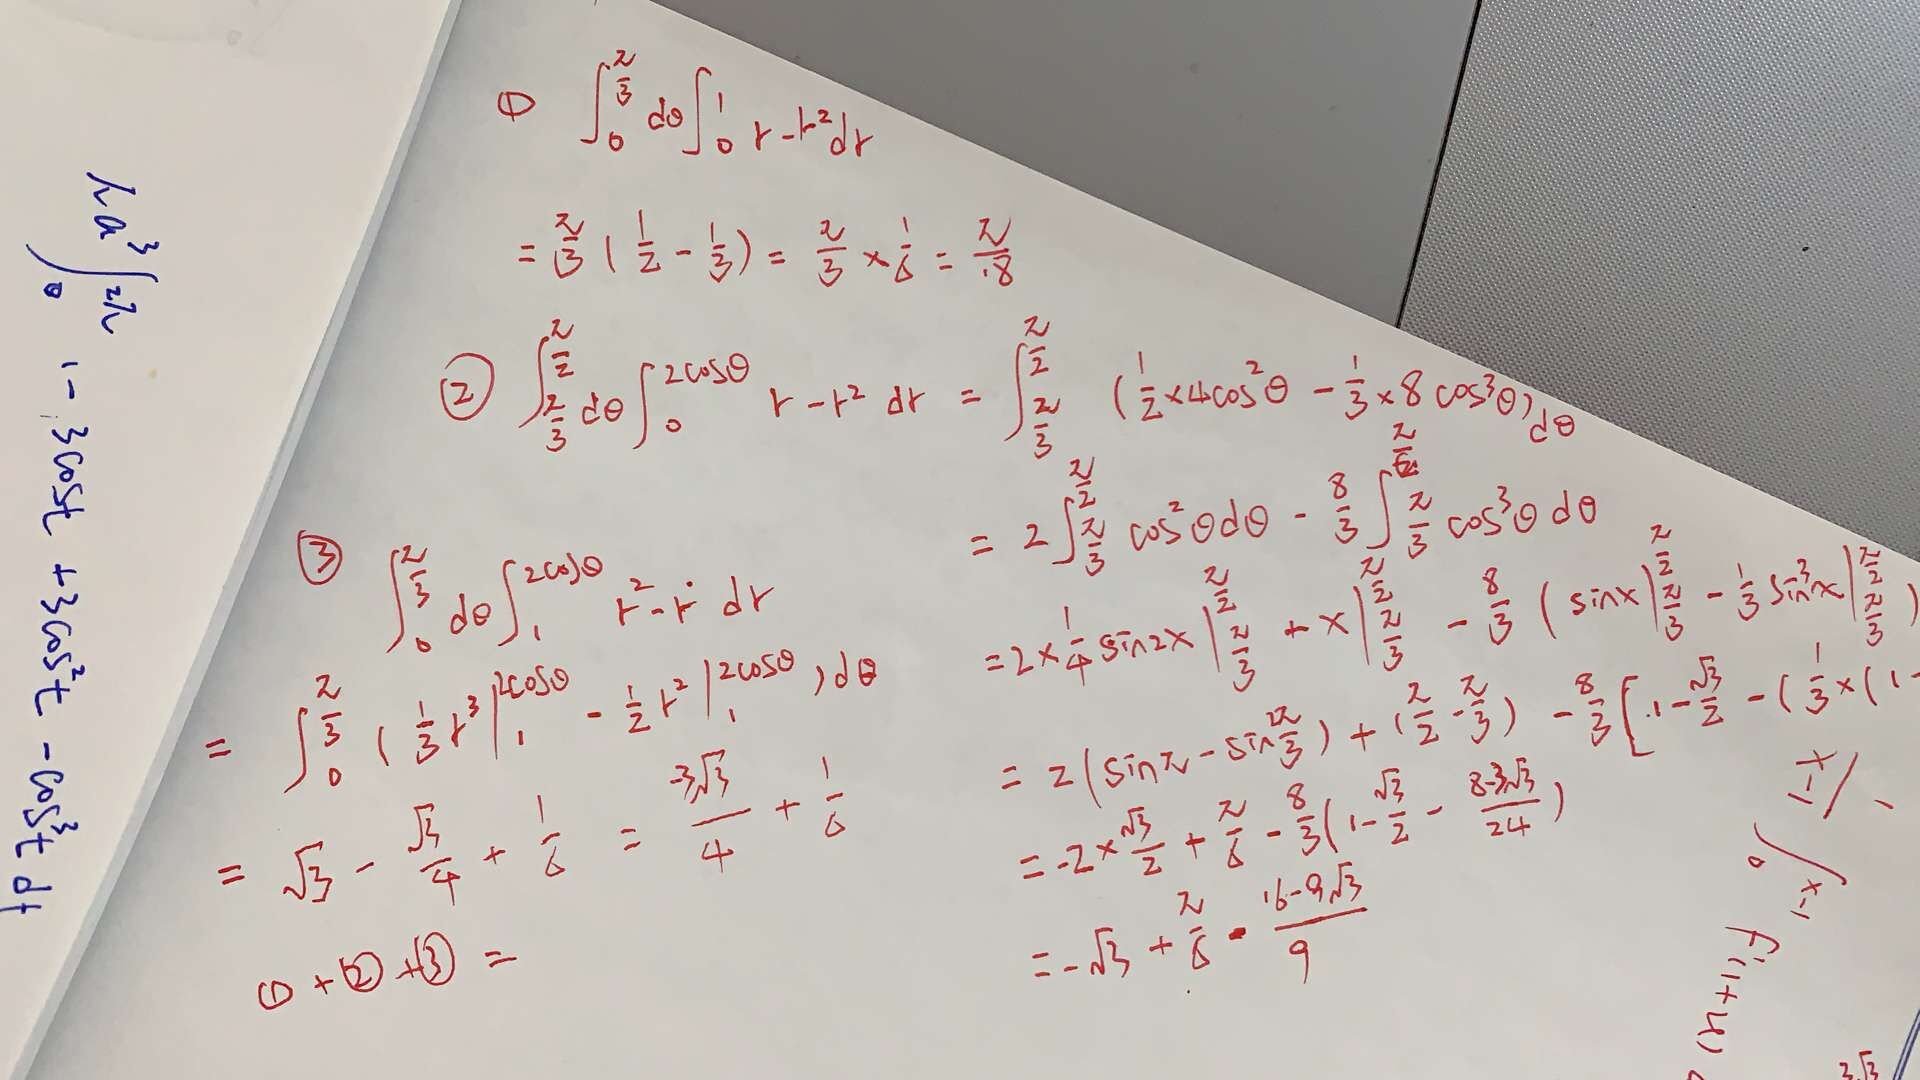 ① ∫_0^{π/3} dθ ∫_0^1 r - r² dr
= π/3 ( 1/2 - 1/3 ) = π/3 × 1/6 = π/18
② ∫_{π/3}^{π/2} dθ ∫_0^{2cosθ} r - r² dr = ∫_{π/3}^{π/2} ( 1/2 × 4cos²θ - 1/3 × 8 cos³θ ) dθ
= 2 ∫_{π/3}^{π/2} cos²θ dθ - 8/3 ∫_{π/3}^{π/2} cos³θ dθ
= 2 × 1/4 sin2x |_{π/3}^{π/2} + x |_{π/3}^{π/2} - 8/3 ( sinx |_{π/3}^{π/2} - 1/3 sin³x |_{π/3}^{π/2} )
= 2 ( sinπ - sin 2π/3 ) + ( π/2 - π/3 ) - 8/3 [ 1 - √3/2 - ( 1/3 × ( 1 -
= -2 × √3/2 + π/6 - 8/3 ( 1 - √3/2 - (8-3√3)/24 )
= -√3 + π/6 - (16-9√3)/9
③ ∫_0^{π/3} dθ ∫_1^{2cosθ} r² - r dr
= ∫_0^{π/3} ( 1/3 r³ |_1^{2cosθ} - 1/2 r² |_1^{2cosθ} ) dθ
= √3 - √3/4 + 1/6 = 3√3/4 + 1/6
① + ② + ③ =
πa³ ∫_0^{2π} 1 - 3cost + 3cos²t - cos³t dt
∫_0^{x-1} f(1+u)
3√3